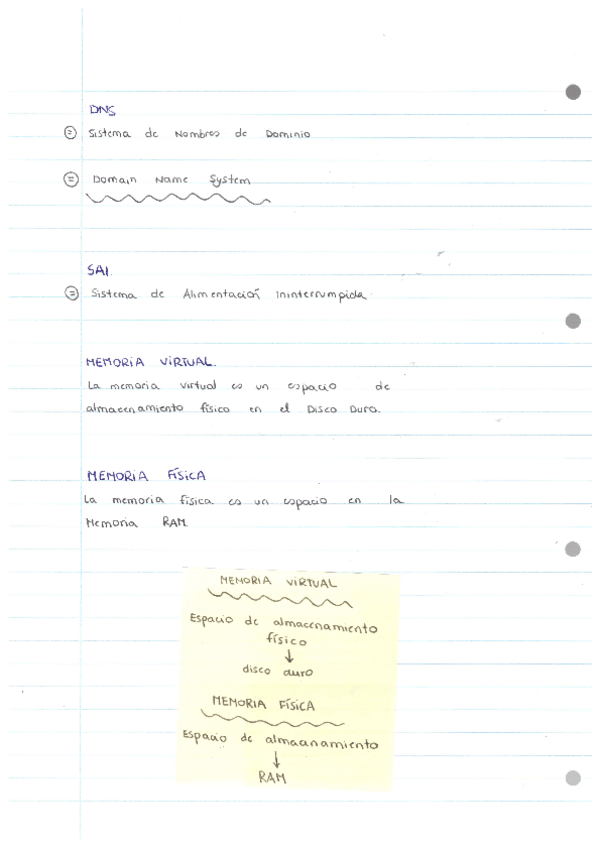 DNS
= Sistema de Nombres de Dominio
= Domain Name System
SAI.
= Sistema de Alimentación Ininterrumpida.
MEMORIA VIRTUAL.
La memoria virtual es un espacio de
almacenamiento físico en el Disco Duro.
MEMORIA FÍSICA
La memoria física es un espacio en la
Memoria RAM
MEMORIA VIRTUAL
Espacio de almacenamiento
físico
↓
disco duro
MEMORIA FÍSICA
Espacio de almacenamiento
↓
RAM